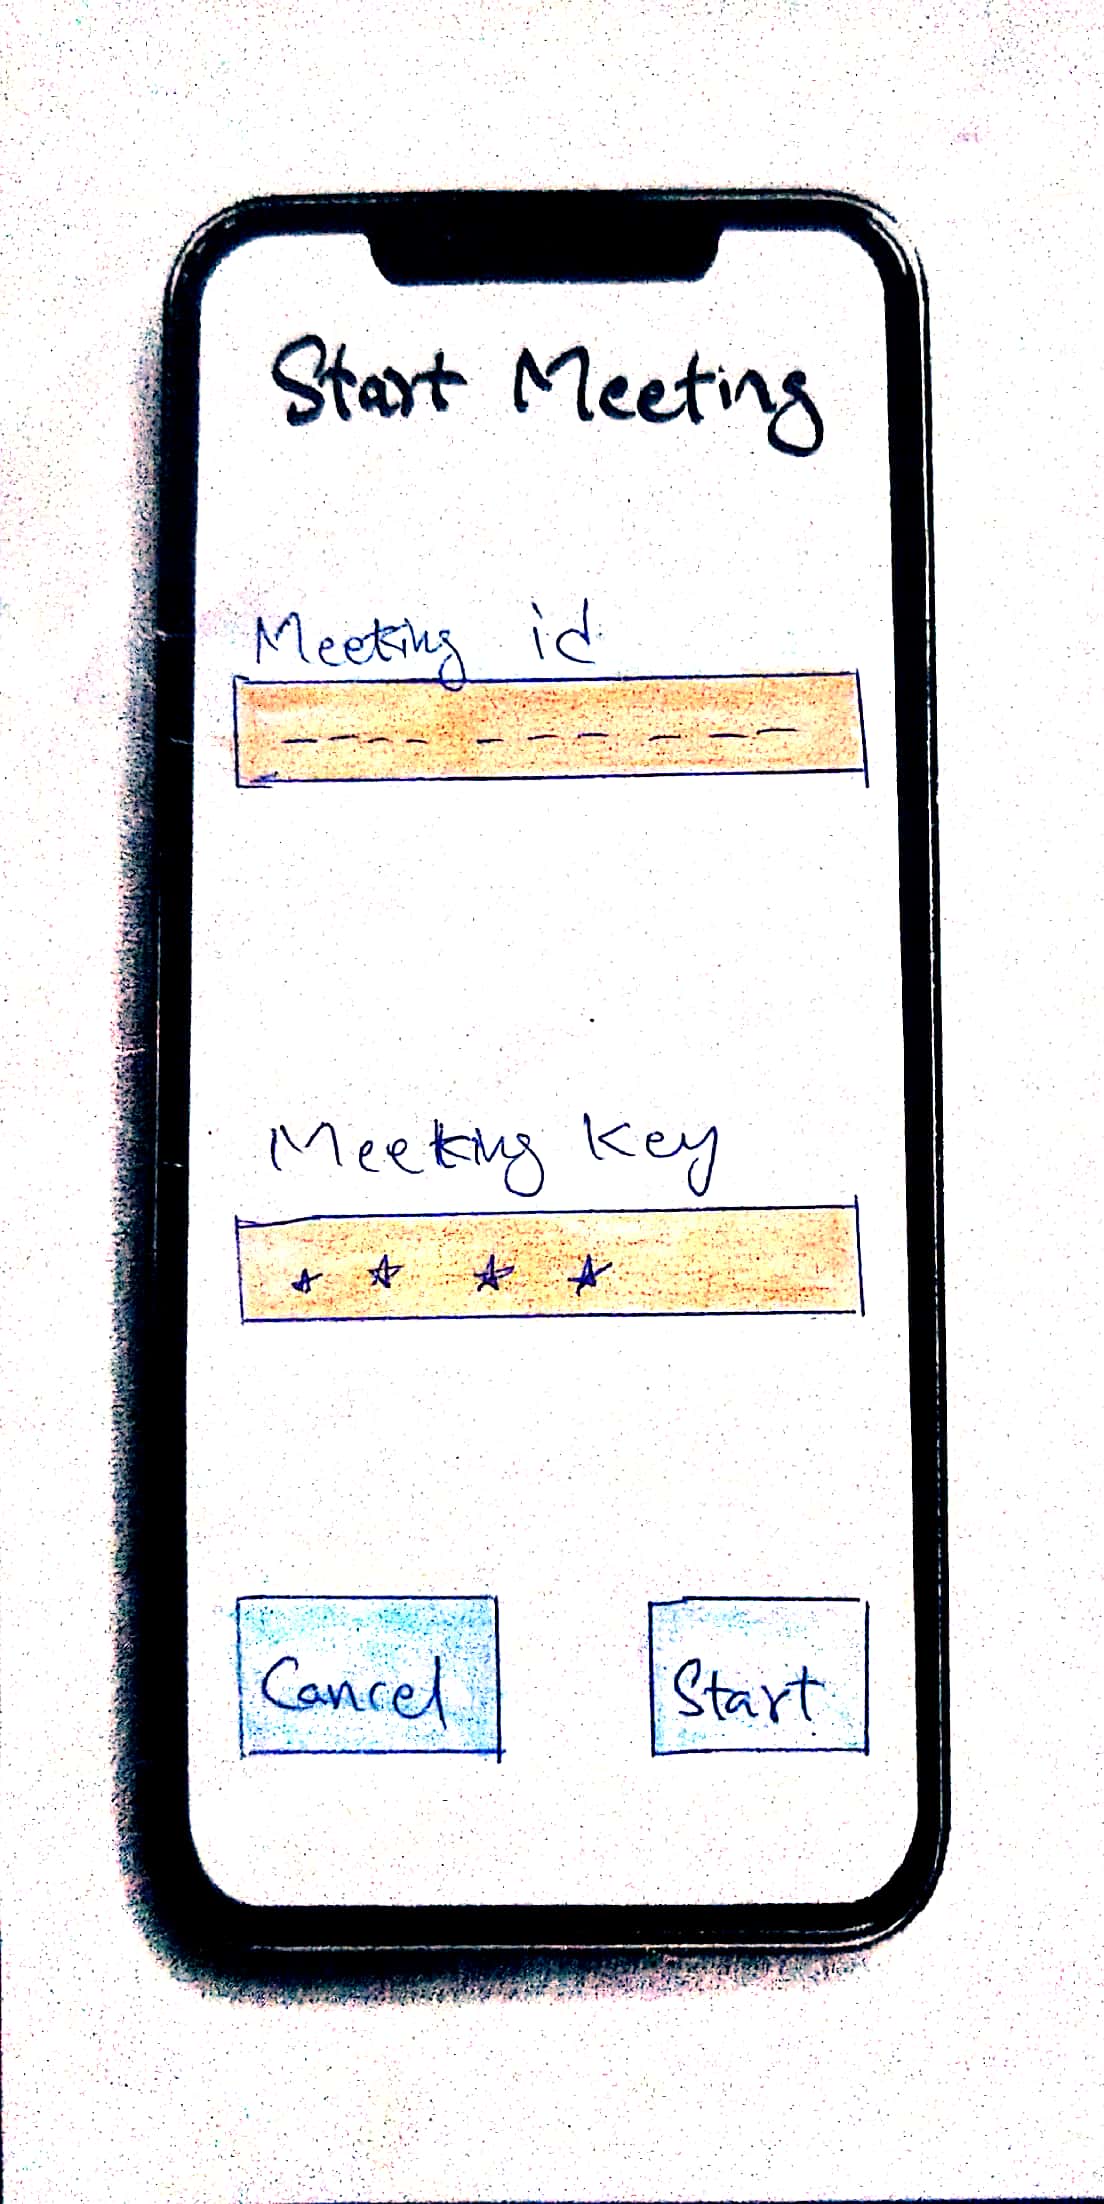 Start Meeting
Meeting id
---- --- ---
Meeting Key
* * * *
Cancel
Start